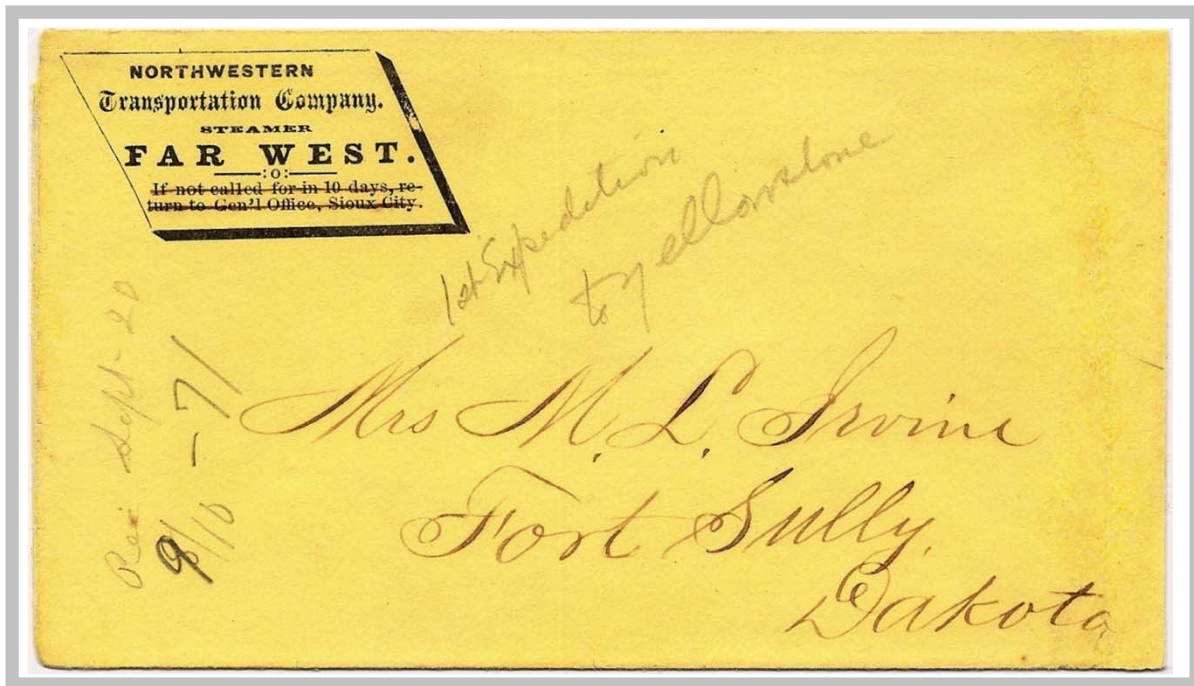 NORTHWESTERN
Transportation Company.
STEAMER
FAR WEST.
:o:
If not called for in 10 days, re-
turn to Gen'l Office, Sioux City.
1st Expedition
to Yellowstone
Rec Sept 20
9/10 - 71
Mrs M. L. Irvine
Fort Sully.
Dakota